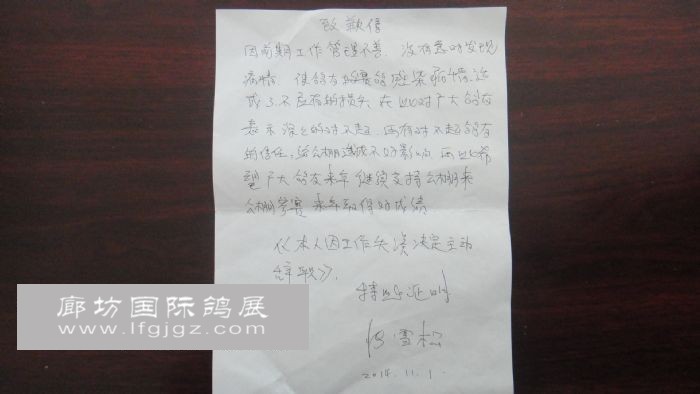 致歉信
因前期工作管理不善，没有意时发现
病情，使鸽友的赛鸽感染病情，造
成了不应有的损失，在此对广大鸽友
表示深深的对不起，再有对不起鸽友
的信任，给公棚造成不好影响，再此希
望广大鸽友来年继续支持公棚，来
公棚参赛，来年取得好成绩
《本人因工作失误决定主动
辞职》。
特此证明
雪松
2014.11.1.
廊坊国际鸽展
www.lfgjgz.com